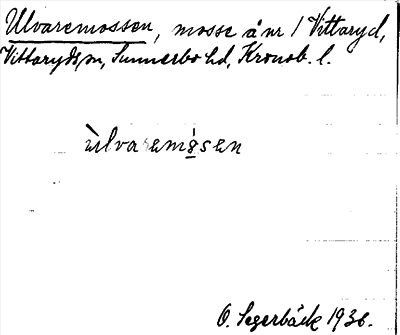 Ulvaremossen, mosse å nr 1 Vittaryd,
Vittaryds sn, Sunnerbo hd, Kronob. l.
ùlvaremåsen
O. Segerbäck 1936.